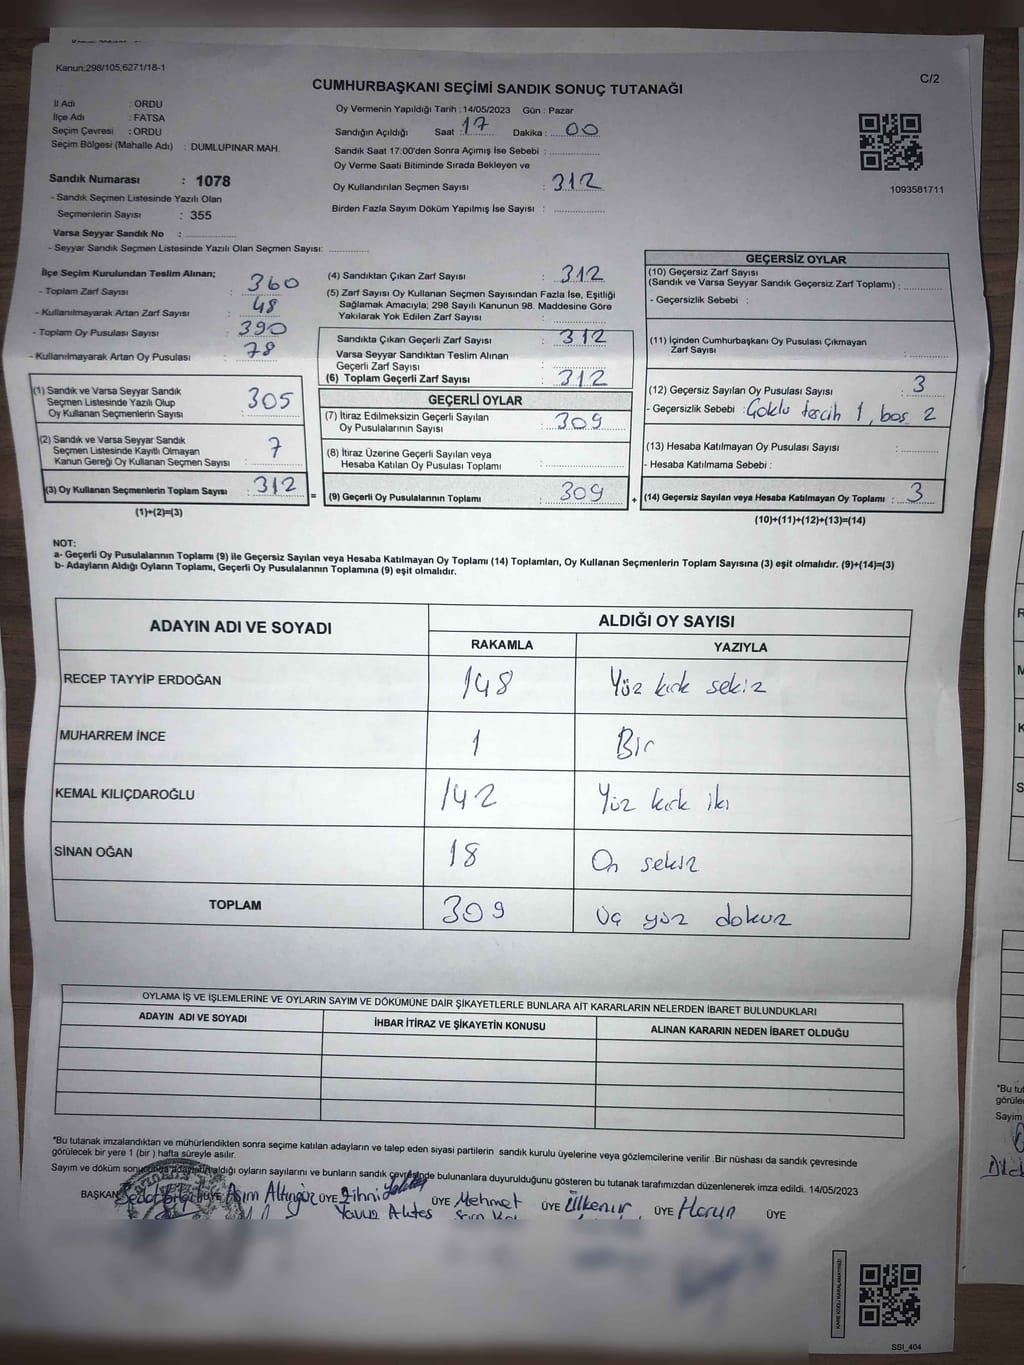 Kanun;298/105;6271/18-1
C/2
CUMHURBAŞKANI SEÇİMİ SANDIK SONUÇ TUTANAĞI
İl Adı : ORDU
İlçe Adı : FATSA
Seçim Çevresi : ORDU
Seçim Bölgesi (Mahalle Adı) : DUMLUPINAR MAH.
Oy Vermenin Yapıldığı Tarih : 14/05/2023 Gün : Pazar
Sandığın Açıldığı Saat : 17 Dakika : 00
Sandık Saat 17:00'den Sonra Açımış İse Sebebi :
Oy Verme Saati Bitiminde Sırada Bekleyen ve
Oy Kullandırılan Seçmen Sayısı : 312
Birden Fazla Sayım Döküm Yapılmış İse Sayısı :
1093581711
Sandık Numarası : 1078
- Sandık Seçmen Listesinde Yazılı Olan
Seçmenlerin Sayısı : 355
Varsa Seyyar Sandık No :
- Seyyar Sandık Seçmen Listesinde Yazılı Olan Seçmen Sayısı:
İlçe Seçim Kurulundan Teslim Alınan;
- Toplam Zarf Sayısı : 360
- Kullanılmayarak Artan Zarf Sayısı : 48
- Toplam Oy Pusulası Sayısı : 390
- Kullanılmayarak Artan Oy Pusulası : 78
(1) Sandık ve Varsa Seyyar Sandık
Seçmen Listesinde Yazılı Olup
Oy Kullanan Seçmenlerin Sayısı : 305
(2) Sandık ve Varsa Seyyar Sandık
Seçmen Listesinde Kayıtlı Olmayan
Kanun Gereği Oy Kullanan Seçmen Sayısı : 7
(3) Oy Kullanan Seçmenlerin Toplam Sayısı : 312
(1)+(2)=(3)
(4) Sandıktan Çıkan Zarf Sayısı : 312
(5) Zarf Sayısı Oy Kullanan Seçmen Sayısından Fazla İse, Eşitliği
Sağlamak Amacıyla; 298 Sayılı Kanunun 98. Maddesine Göre
Yakılarak Yok Edilen Zarf Sayısı :
Sandıkta Çıkan Geçerli Zarf Sayısı : 312
Varsa Seyyar Sandıktan Teslim Alınan
Geçerli Zarf Sayısı :
(6) Toplam Geçerli Zarf Sayısı : 312
GEÇERLİ OYLAR
(7) İtiraz Edilmeksizin Geçerli Sayılan
Oy Pusulalarının Sayısı : 309
(8) İtiraz Üzerine Geçerli Sayılan veya
Hesaba Katılan Oy Pusulası Toplamı :
= (9) Geçerli Oy Pusulalarının Toplamı : 309
GEÇERSİZ OYLAR
(10) Geçersiz Zarf Sayısı
(Sandık ve Varsa Seyyar Sandık Geçersiz Zarf Toplamı) :
- Geçersizlik Sebebi :
(11) İçinden Cumhurbaşkanı Oy Pusulası Çıkmayan
Zarf Sayısı :
(12) Geçersiz Sayılan Oy Pusulası Sayısı : 3
- Geçersizlik Sebebi : Çoklu tercih 1, boş 2
(13) Hesaba Katılmayan Oy Pusulası Sayısı :
- Hesaba Katılmama Sebebi :
+ (14) Geçersiz Sayılan veya Hesaba Katılmayan Oy Toplamı : 3
(10)+(11)+(12)+(13)=(14)
NOT:
a- Geçerli Oy Pusulalarının Toplamı (9) ile Geçersiz Sayılan veya Hesaba Katılmayan Oy Toplamı (14) Toplamları, Oy Kullanan Seçmenlerin Toplam Sayısına (3) eşit olmalıdır. (9)+(14)=(3)
b- Adayların Aldığı Oyların Toplamı, Geçerli Oy Pusulalarının Toplamına (9) eşit olmalıdır.
ADAYIN ADI VE SOYADI
ALDIĞI OY SAYISI
RAKAMLA YAZIYLA
RECEP TAYYİP ERDOĞAN 148 Yüz kırk sekiz
MUHARREM İNCE 1 Bir
KEMAL KILIÇDAROĞLU 142 Yüz kırk iki
SİNAN OĞAN 18 On sekiz
TOPLAM 309 Üç yüz dokuz
OYLAMA İŞ VE İŞLEMLERİNE VE OYLARIN SAYIM VE DÖKÜMÜNE DAİR ŞİKAYETLERLE BUNLARA AİT KARARLARIN NELERDEN İBARET BULUNDUKLARI
ADAYIN ADI VE SOYADI İHBAR İTİRAZ VE ŞİKAYETİN KONUSU ALINAN KARARIN NEDEN İBARET OLDUĞU
"Bu tutanak imzalandıktan ve mühürlendikten sonra seçime katılan adayların ve talep eden siyasi partilerin sandık kurulu üyelerine veya gözlemcilerine verilir .Bir nüshası da sandık çevresinde
görülecek bir yere 1 (bir ) hafta süreyle asılır.
Sayım ve döküm sonucunda adayların aldığı oyların sayılarını ve bunların sandık çevresinde bulunanlara duyurulduğunu gösteren bu tutanak tarafımızdan düzenlenerek imza edildi. 14/05/2023
BAŞKAN Sedat ÜYE Asım Altıngöz ÜYE Zihni ÜYE Mehmet ÜYE Ülkenur ÜYE Harun ÜYE
Yavuz Aktes
SSI_404